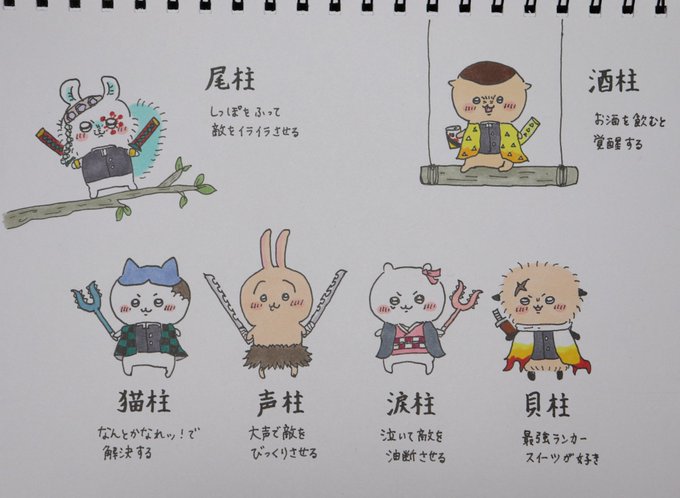 尾柱
しっぽをふって
敵をイライラさせる
酒柱
お酒を飲むと
覚醒する
猫柱
なんとかなれッ!で
解決する
声柱
大声で敵を
びっくりさせる
涙柱
泣いて敵を
油断させる
貝柱
最強ランカー
スイーツが好き